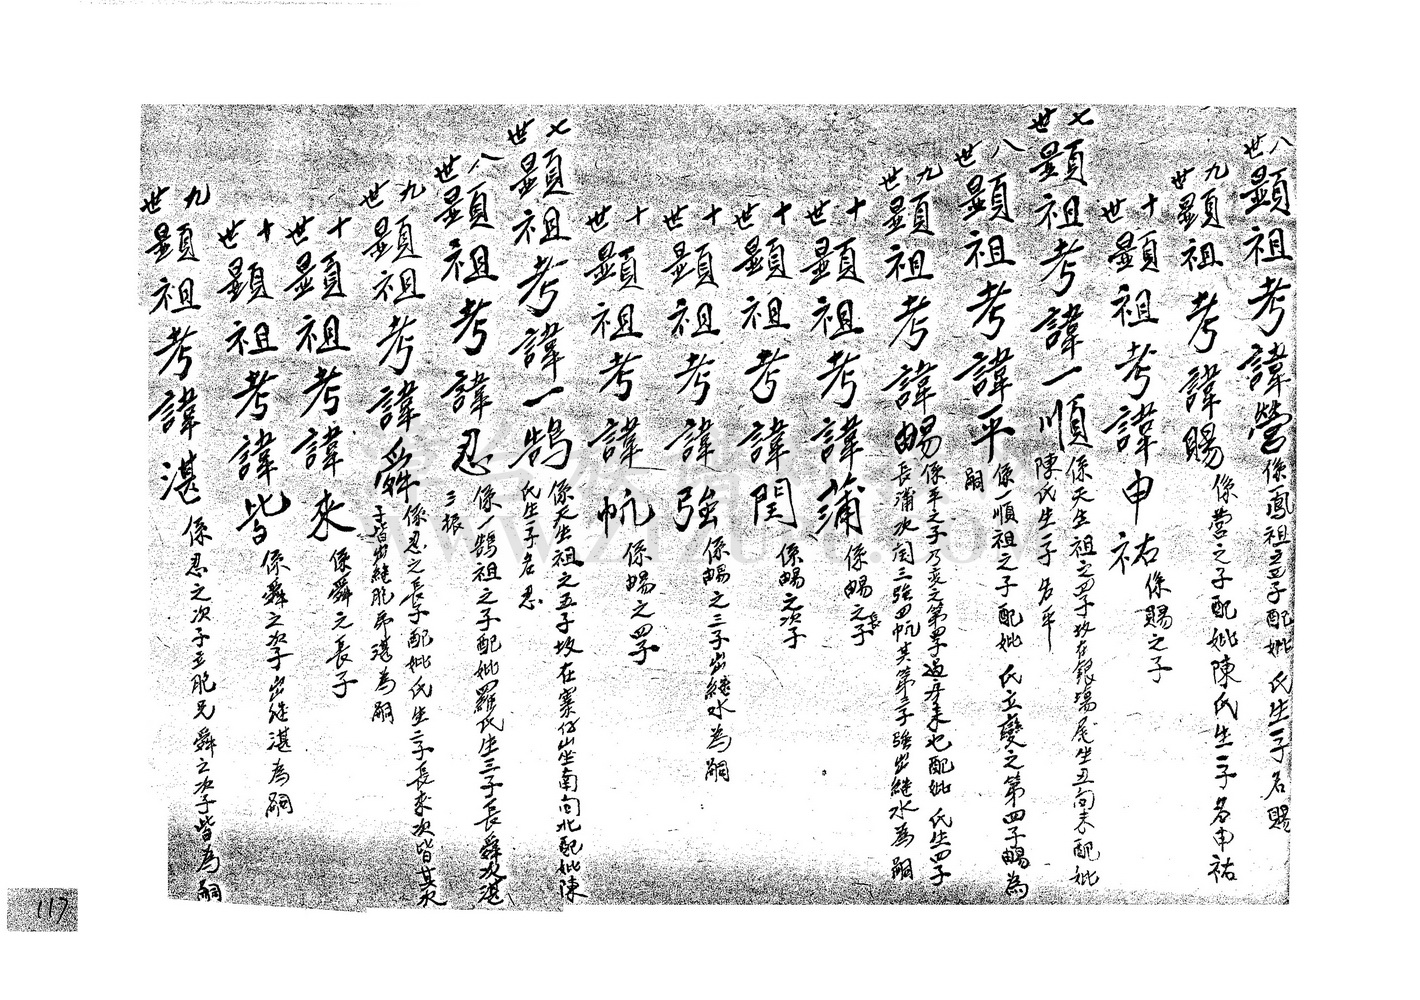 八世顯祖考諱營 係鳳祖之子配妣 氏生一子名賜
九世顯祖考諱賜 係營之子配妣陳氏生一子名申祐
十世顯祖考諱申祐 係賜之子
七世顯祖考諱一順 係天生祖之四子坟在銀場尾坐丑向未配妣
陳氏生一子名平
八世顯祖考諱平 係一順祖之子配妣 氏立變之第四子𬀩為
嗣
九世顯祖考諱 係平之子乃变之第四子過房来也配妣 氏生四子
長蒲次閏三強四帆其第三子強出継水為嗣
十世顯祖考諱蒲 係 之長子
十世顯祖考諱閏 係 之次子
十世顯祖考諱強 係 之三子出継水為嗣
十世顯祖考諱帆 係 之四子
七世顯祖考諱一鵠 係天生祖之五子坟在寨仔山坐南向北配妣陳
氏生一子名忍
八世顯祖考諱忍 係一鵠祖之子配妣羅氏生三子長舜次湛
三振
九世顯祖考諱舜 係忍之長子配妣氏生二子長來次皆其次
子皆出継胞弟湛為嗣
十世顯祖考諱來 係舜之長子
十世顯祖考諱皆 係舜之次子出继湛為嗣
九世顯祖考諱湛 係忍之次子立胞兄舜之次子皆為嗣
117